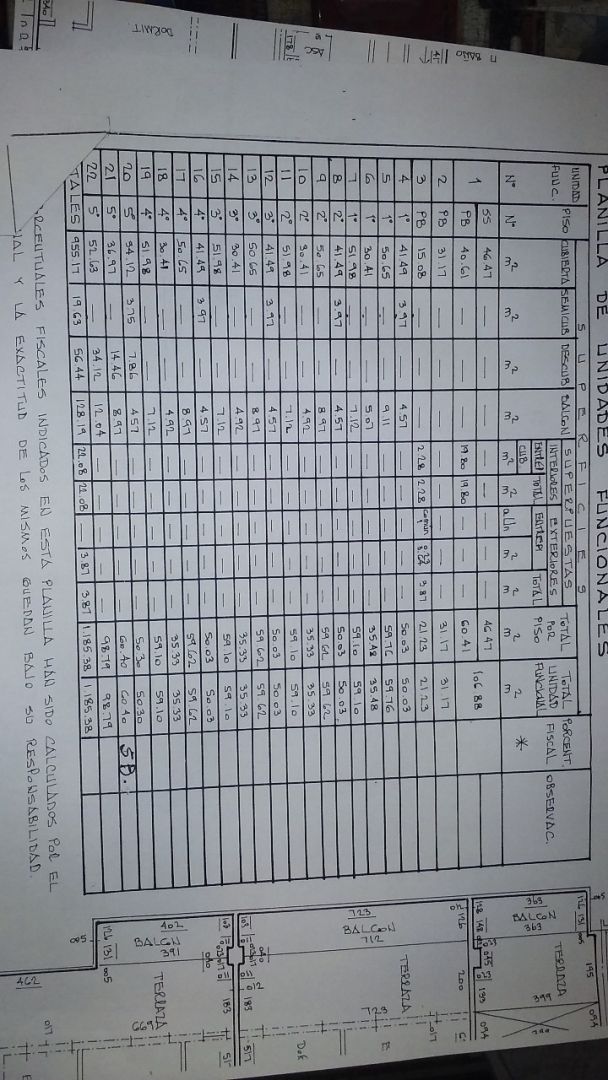 PLANILLA DE UNIDADES FUNCIONALES
UNIDAD FUNC. PISO SUPERFICIES TOTAL POR PISO TOTAL UNIDAD FUNCIONAL PORCENT. FISCAL OBSERVAC.
CUBIERTA SEMICUB DESCUB BALCON SUPERPUESTAS
INTERIORES EXTERIORES
ENTREP CUB. TOTAL ENTREP TOTAL
Nº Nº m2 m2 m2 m2 m2 m2 m2 m2 m2 m2 *
1 SS 46.47 — — — — — — — — 46.47
PB 40.61 — — — 19.80 19.80 — — — 60.41 106.88
2 PB 31.17 — — — — — — — — 31.17 31.17
3 PB 15.08 — — — 2.28 2.28 3.87 21.23 21.23
4 1º 41.49 3.97 — 4.57 — — — — — 50.03 50.03
5 1º 50.65 — — 9.11 — — — — — 59.76 59.76
6 1º 30.41 — — 5.07 — — — — — 35.48 35.48
7 1º 51.98 — — 7.12 — — — — — 59.10 59.10
8 2º 41.49 3.97 — 4.57 — — — — — 50.03 50.03
9 2º 50.65 — — 8.97 — — — — — 59.62 59.62
10 2º 30.41 — — 4.92 — — — — — 35.33 35.33
11 2º 51.98 — — 7.12 — — — — — 59.10 59.10
12 3º 41.49 3.97 — 4.57 — — — — — 50.03 50.03
13 3º 50.65 — — 8.97 — — — — — 59.62 59.62
14 3º 30.41 — — 4.92 — — — — — 35.33 35.33
15 3º 51.98 — — 7.12 — — — — — 59.10 59.10
16 4º 41.49 3.97 — 4.57 — — — — — 50.03 50.03
17 4º 50.65 — — 8.97 — — — — — 59.62 59.62
18 4º 30.41 — — 4.92 — — — — — 35.33 35.33
19 4º 51.98 — — 7.12 — — — — — 59.10 59.10
20 5º 34.12 3.75 7.86 4.57 — — — — — 50.30 50.30
21 5º 36.97 — 14.46 8.97 — — — — — 60.40 60.40 5B.
22 5º 52.63 — 34.12 12.04 — — — — — 98.79 98.79
TALES 955.17 19.63 56.44 128.19 22.08 22.08 3.87 3.87 1.185.38 1.185.38
RCENTUALES FISCALES INDICADOS EN ESTA PLANILLA HAN SIDO CALCULADOS POR EL
Y LA EXACTITUD DE LOS MISMOS QUEDAN BAJO SU RESPONSABILIDAD.
BAÑO
ASC
178
DORMIT.
363
BALCON
363
TERRAZA
399
195
094
723
BALCON
712
TERRAZA
723
200
126
193
402
BALCON
391
TERRAZA
669
183
183
462
005
126 131